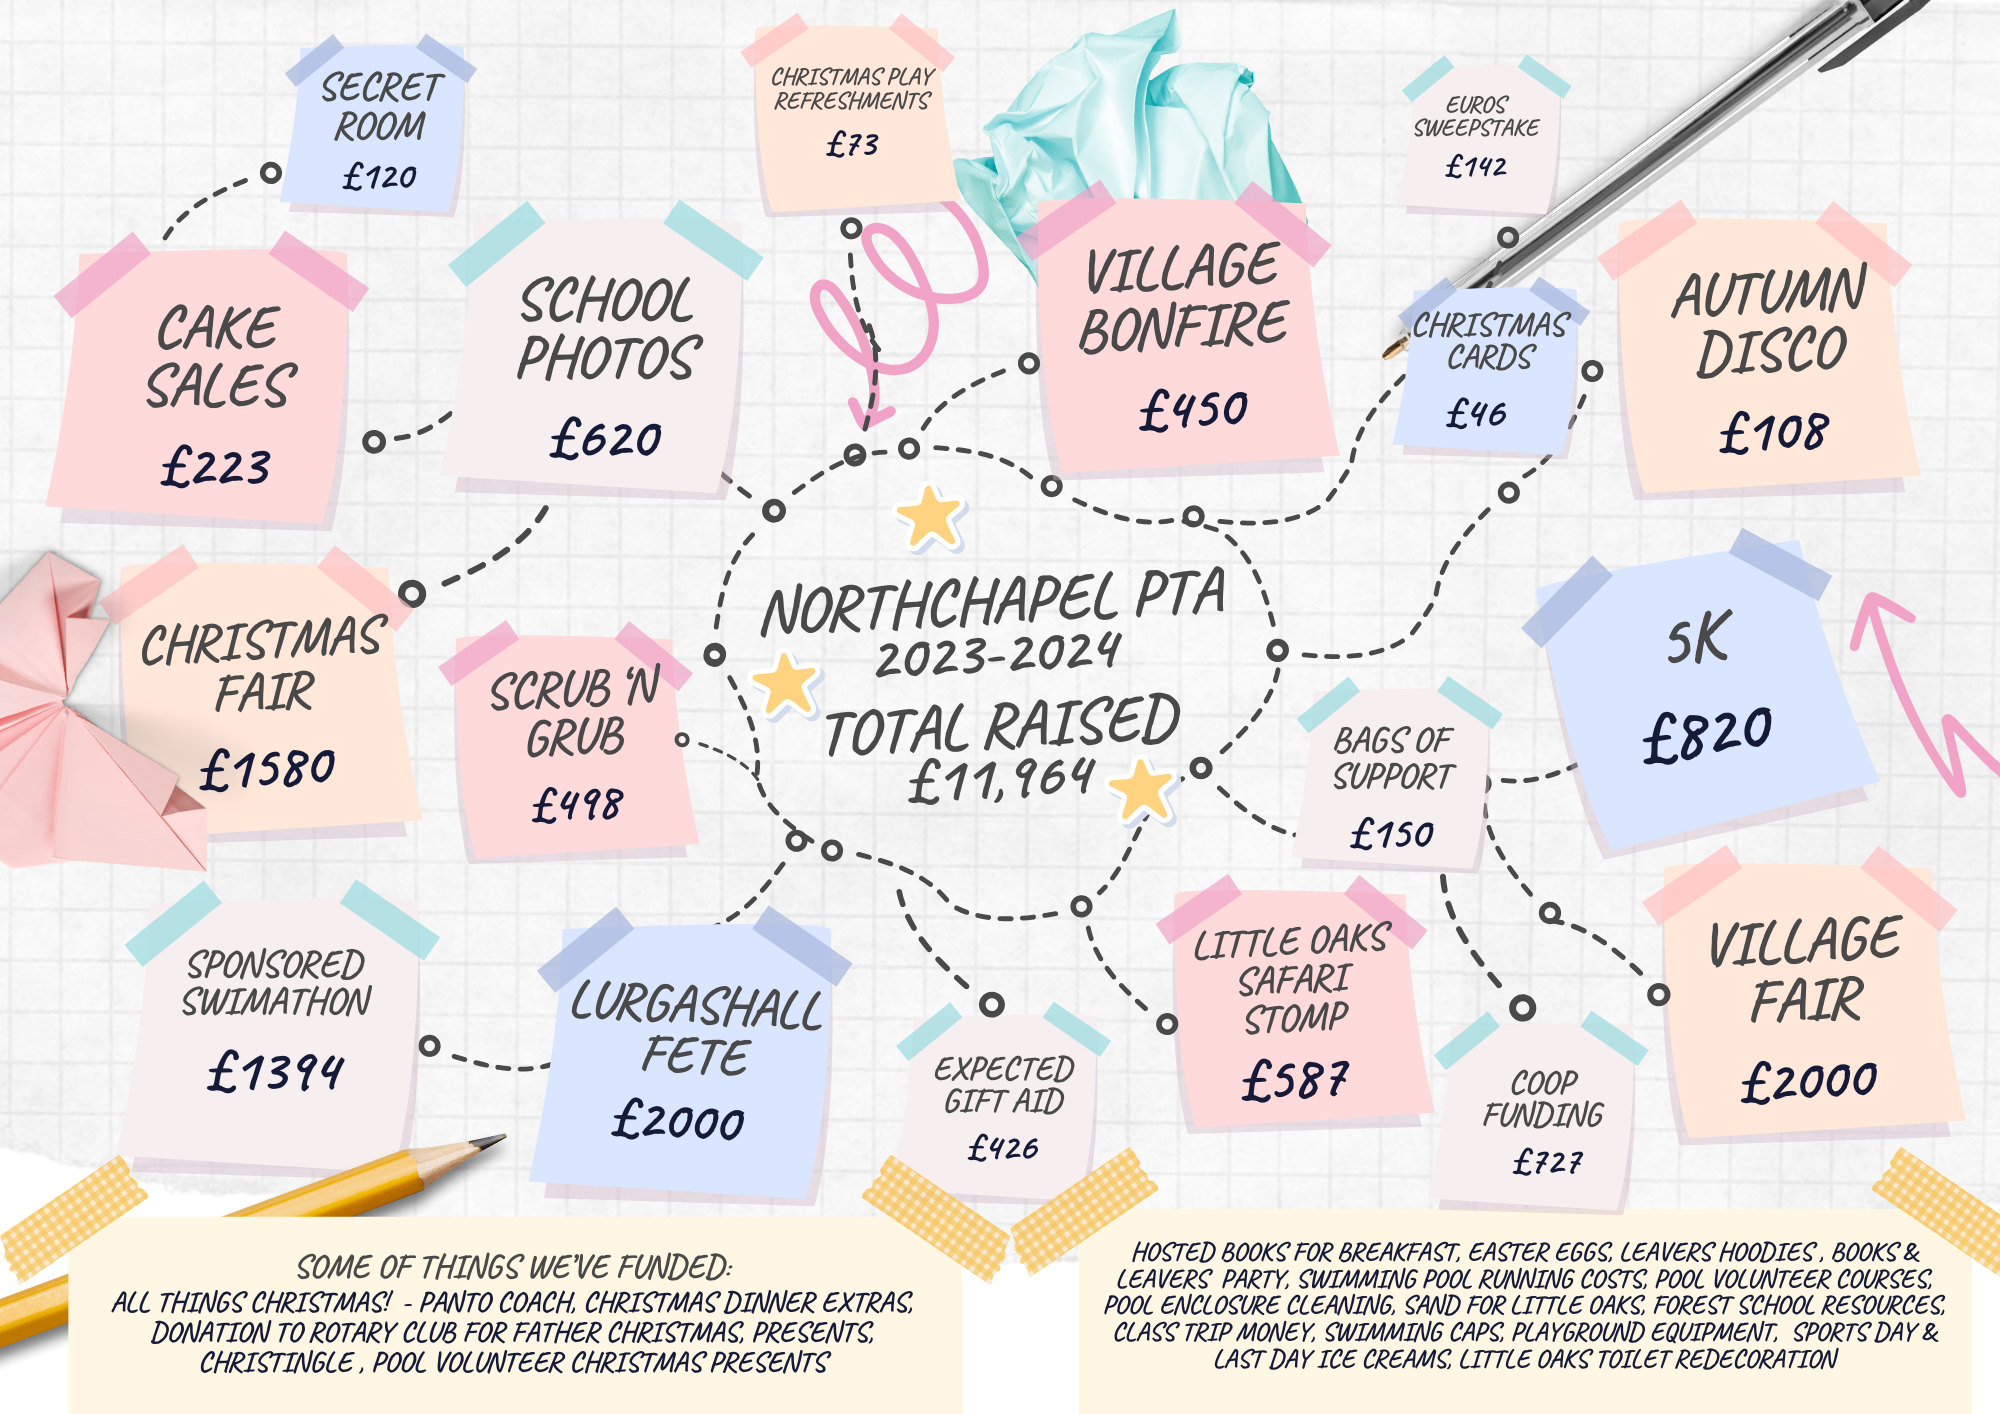 SECRET
ROOM
£120
CHRISTMAS PLAY
REFRESHMENTS
£73
EUROS
SWEEPSTAKE
£142
CAKE
SALES
£223
SCHOOL
PHOTOS
£620
VILLAGE
BONFIRE
£450
CHRISTMAS
CARDS
£46
AUTUMN
DISCO
£108
CHRISTMAS
FAIR
£1580
SCRUB 'N
GRUB
£498
NORTHCHAPEL PTA
2023-2024
TOTAL RAISED
£11,964
BAGS OF
SUPPORT
£150
5K
£820
SPONSORED
SWIMATHON
£1394
LURGASHALL
FETE
£2000
EXPECTED
GIFT AID
£426
LITTLE OAKS
SAFARI
STOMP
£587
COOP
FUNDING
£727
VILLAGE
FAIR
£2000
SOME OF THINGS WE'VE FUNDED:
ALL THINGS CHRISTMAS! - PANTO COACH, CHRISTMAS DINNER EXTRAS,
DONATION TO ROTARY CLUB FOR FATHER CHRISTMAS, PRESENTS,
CHRISTINGLE , POOL VOLUNTEER CHRISTMAS PRESENTS
HOSTED BOOKS FOR BREAKFAST, EASTER EGGS, LEAVERS HOODIES , BOOKS &
LEAVERS PARTY, SWIMMING POOL RUNNING COSTS, POOL VOLUNTEER COURSES,
POOL ENCLOSURE CLEANING, SAND FOR LITTLE OAKS, FOREST SCHOOL RESOURCES,
CLASS TRIP MONEY, SWIMMING CAPS, PLAYGROUND EQUIPMENT, SPORTS DAY &
LAST DAY ICE CREAMS, LITTLE OAKS TOILET REDECORATION